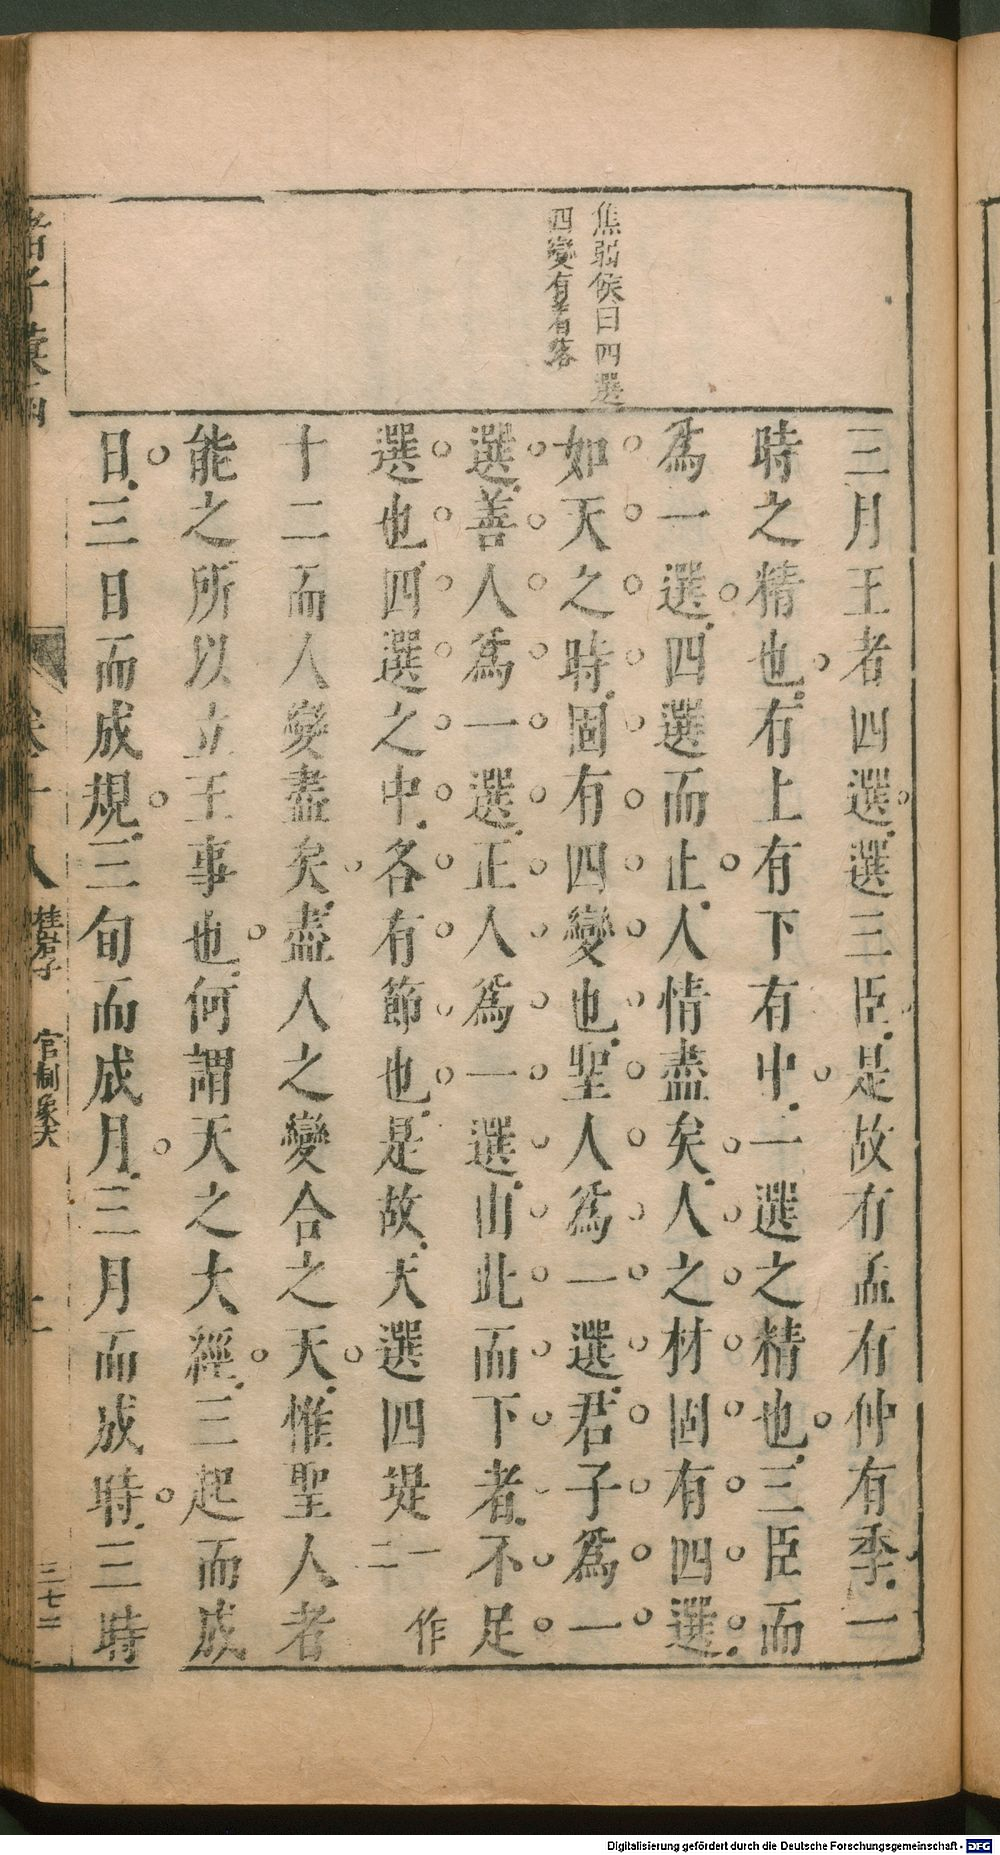 焦弱侯曰四選
四變有着落
三月王者四選選三臣是故有孟有仲有季一
時之精也有上有下有中一選之精也三臣而
爲一選四選而止人情盡矣人之材固有四選
如天之時固有四變也聖人爲一選君子爲一
選善人爲一選正人爲一選由此而下者不足
選也四選之中各有節也是故天選四堤一作二
十二而人變盡矣盡人之變合之天惟聖人者
能之所以立王事也何謂天之大經三起而成
日三日而成規三旬而成月三月而成時三時
諸子彙函
卷十八
桂巖子
官制象天
三七
Digitalisierung gefördert durch die Deutsche Forschungsgemeinschaft - DFG